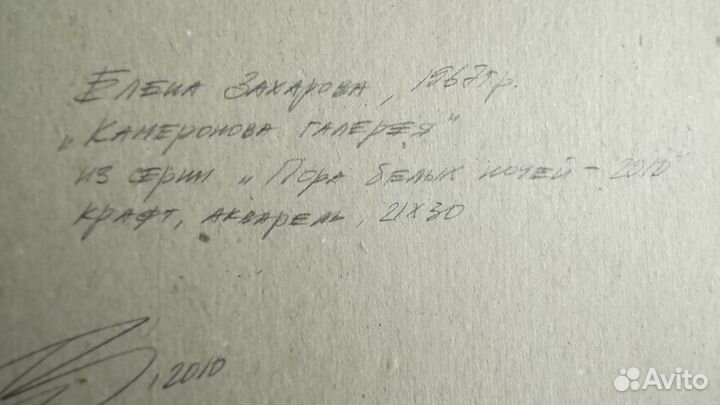 Елена Захарова, 1967г.р.
„Камеронова галерея"
из серии „Пора белых ночей - 2010"
крафт, акварель, 21х30
, 2010
Avito